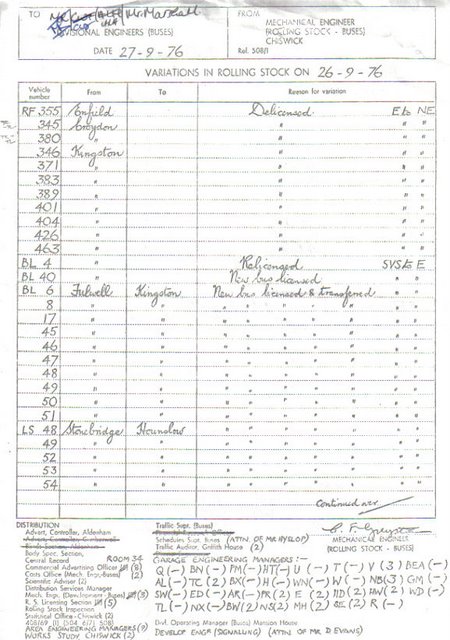 TO
Mr. Marshall
FROM
MECHANICAL ENGINEER
(ROLLING STOCK - BUSES)
CHISWICK
DIVISIONAL ENGINEERS (BUSES)
DATE 27-9-76
Ref. 508/1
VARIATIONS IN ROLLING STOCK ON 26-9-76
Vehicle number From To Reason for variation
RF 355 Enfield Delicensed E to NE
345 Croydon " " "
380 " " " "
346 Kingston " " "
371 " " " "
383 " " " "
389 " " " "
401 " " " "
404 " " " "
426 " " " "
463 " " " "
BL 4 " Relicensed SVS to E
BL 40 " New bus licensed " "
BL 6 Fulwell Kingston New bus licensed & transferred " "
8 " " " " " " " " "
17 " " " " " " " " "
45 " " " " " " " " "
46 " " " " " " " " "
47 " " " " " " " " "
48 " " " " " " " " "
49 " " " " " " " " "
50 " " " " " " " " "
51 " " " " " " " " "
LS 48 Stonebridge Hounslow " " " " " " "
49 " " " " " " " " "
52 " " " " " " " " "
53 " " " " " " " " "
54 " " " " " " " " "
Continued over
DISTRIBUTION
Advert. Controller, Aldenham
Body Spec. Section,
Central Record ROOM 34
Commercial Advertising Officer (8)
Costs Office (Mech. Engr.-Buses) (2)
Scientific Adviser (2)
Distribution Services Manager
Mech. Engr. (Dev./Project-Buses) (3)
R. S. Licensing Section (5)
Rolling Stock Inspection
Statistical Office - Chiswick (2)
408/659 (1) 504 (6/7) 508/1
AREA ENGINEERING MANAGERS (9)
WORKS STUDY, CHISWICK (2)
Traffic Supt. (Buses)
Schedules Supt. Buses (ATTN. OF MR HYSLOP)
Traffic Auditor, Griffith House (2)
MECHANICAL ENGINEER
(ROLLING STOCK - BUSES)
GARAGE ENGINEERING MANAGERS:-
Q (-) BN (-) PM (-) HT (-) U (-) T (-) V (3) BEA (-)
AL (-) TC (2) BX (-) H (-) WN (-) W (-) NB (3) GM (-)
SW (-) ED (-) AR (-) PR (2) E (2) HD (2) HW (2) WD (-)
TL (-) NX (-) BW (2) NS (2) MH (2) SE (2) R (-)
Divl. Operating Manager (Buses) Mansion House
DEVELOP ENGR (SIGNALLING) (ATTN OF MR D EVANS)